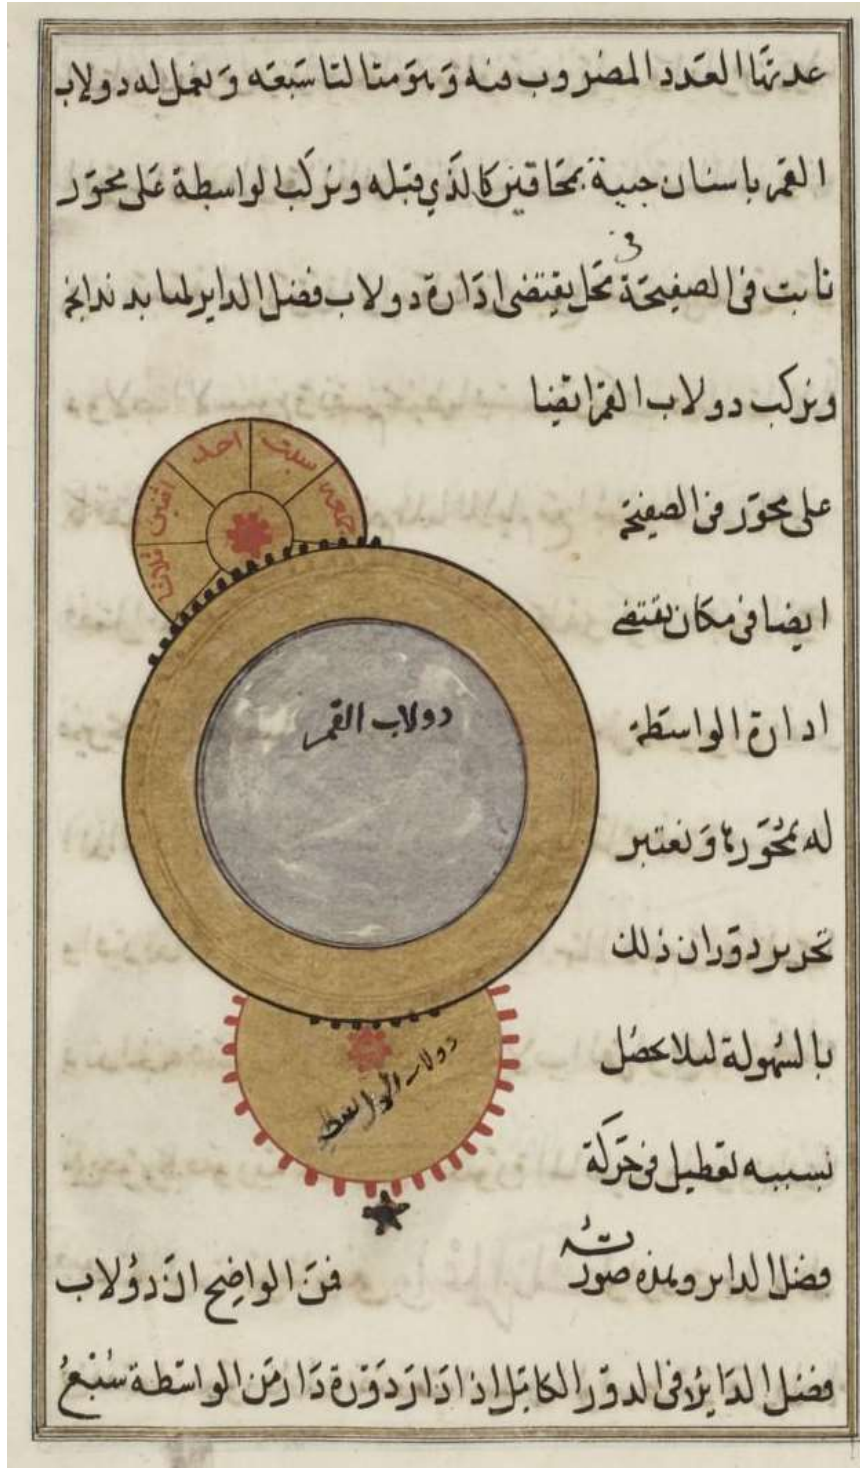 عدتها العدد المضروب منه وهو مثالنا سبعة ونعمل له دولاب
القمر باسنان جيبية بمحاقين كالذي قبله ونركب الواسطة على محور
ثابت في الصفيحة في محل يقتضى ادارة دولاب فضل الداير لها بدندانجه
ونركب دولاب القمر ايضا
على محور في الصفيحة
ايضا في مكان يقتضي
ادارة الواسطة
له بمحورها ونعتبر
تحرير دوران ذلك
بالسهولة ليلا يحصل
بسببه تعطيل في حركة
فضل الداير وهذه صورته
فمن الواضح ان دولاب
فضل الداير في الدور الكامل اذا دار دورة دار من الواسطة سبع
جمعه
سبت
احد
اثنين
ثلاثا
دولاب القمر
دولاب الواسطه